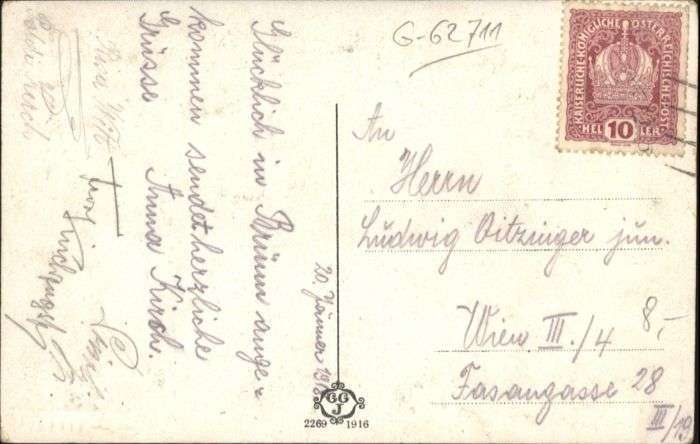 G-62711
KAISERLICHE KÖNIGLICHE ÖSTERREICHISCHE POST
HELLER
10
An
Herrn
Ludwig Oitzinger jun.
Wien III./4
Fasangasse 28
8,-
III/19
Glücklich in Brünn ange-
kommen sendet herzliche
Grüsse Anna Kirch.
20. Jänner 191
GGJ
2269 1916